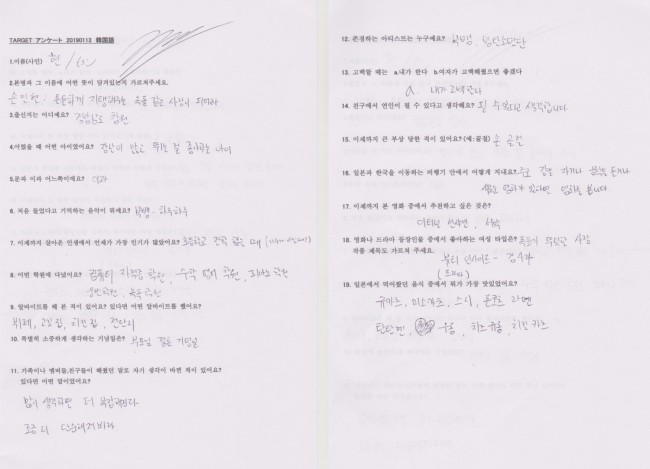 TARGET アンケート 20190113 韓国語
1.이름(사인) 현 /
2.본명과 그 이름에 어떤 뜻이 담겨있는지 가르쳐주세요.
손인현: 든든하게 지탱해주는 사람이 되어라
3.출신지는 어디예요? 경상남도 창원
4.어렸을 때 어떤 아이였어요? 겁살이 많고 뛰는 걸 좋아하는 아이
5.문과 이과 어느쪽이예요? 이과
6.처음 들었다고 기억하는 음악이 뭐예요? 빅뱅 - 하루하루
7. 이제까지 살아온 인생에서 언제가 가장 인기가 많았어요? 초등학교 전학 갔을 때
8. 어떤 학원에 다녔어요? 컴퓨터 자격증 학원, 수학 영어 학원, 피아노 학원
9. 알바이트를 해 본 적이 있어요? 있다면 어떤 알바이트를 했어요?
뷔페, 고깃집, 치킨집, 전단지
10. 특별히 소중하게 생각하는 기념일은? 부모님 결혼 기념일
11. 가족이나 멤버들,친구들이 해줬던 말로 자기 생각이 바뀐 적이 있어요?
있다면 어떤 말이었어요?
많이 생각하면 더 복잡해진다
조금 더 단순해져봐라
12. 존경하는 아티스트는 누구예요? 빅뱅, 방탄소년단
13. 고백할 때는 a.내가 한다 b.여자가 고백해줬으면 좋겠다
a. 내가 고백한다
14. 친구에서 연인이 될 수 있다고 생각해요? 될 수 있다고 생각합니다
15. 이제까지 큰 부상 당한 적이 있어요?(예:골절) 손 골절
16. 일본과 한국을 이동하는 비행기 안에서 어떻게 지내요? 주로 잠을 자거나 음악을 듣거나
영화가 있다면 영화를 봅니다
17. 이제까지 본 영화 중에서 추천하고 싶은 것은?
이터널 선샤인,
18. 영화나 드라마 등장인물 중에서 좋아하는 여성 타입은? 사람
작품 제목도 가르쳐 주세요.
뷰티 인사이드 -
(드라마)
19. 일본에서 먹어봤던 음식 중에서 뭐가 가장 맛있었어요?
규카츠, 미소카츠, 스시, 돈코츠 라멘
탄탄면, 우동, 치즈